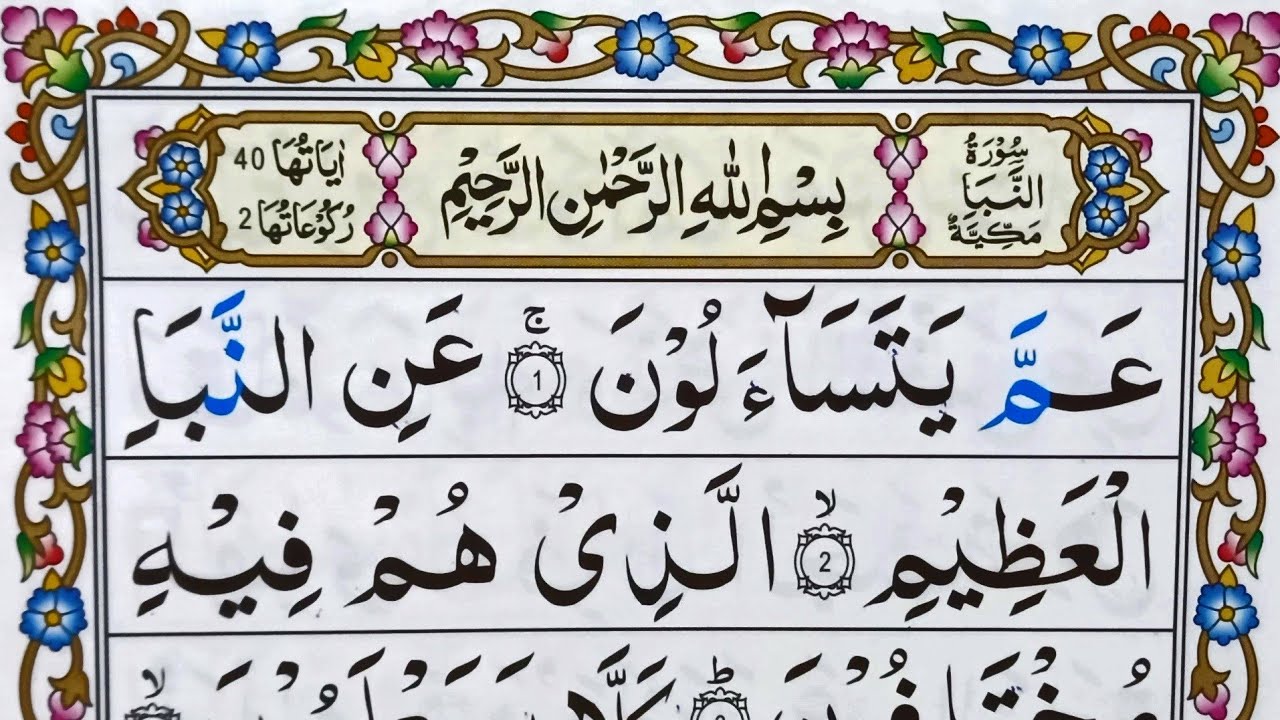 سُوْرَةُ النَّبَاِ مَكِّيَّةٌ
بِسْمِ اللّٰهِ الرَّحْمٰنِ الرَّحِيْمِ
اٰيَاتُهَا 40
رُكُوْعَاتُهَا 2
عَمَّ يَتَسَآءَلُوْنَ ۚ 1 عَنِ النَّبَاِ
الْعَظِيْمِ ۙ 2 الَّذِىْ هُمْ فِيْهِ
مُخْتَلِفُوْنَ ؕ 3 كَلَّا سَيَعْلَمُوْنَ ۙ